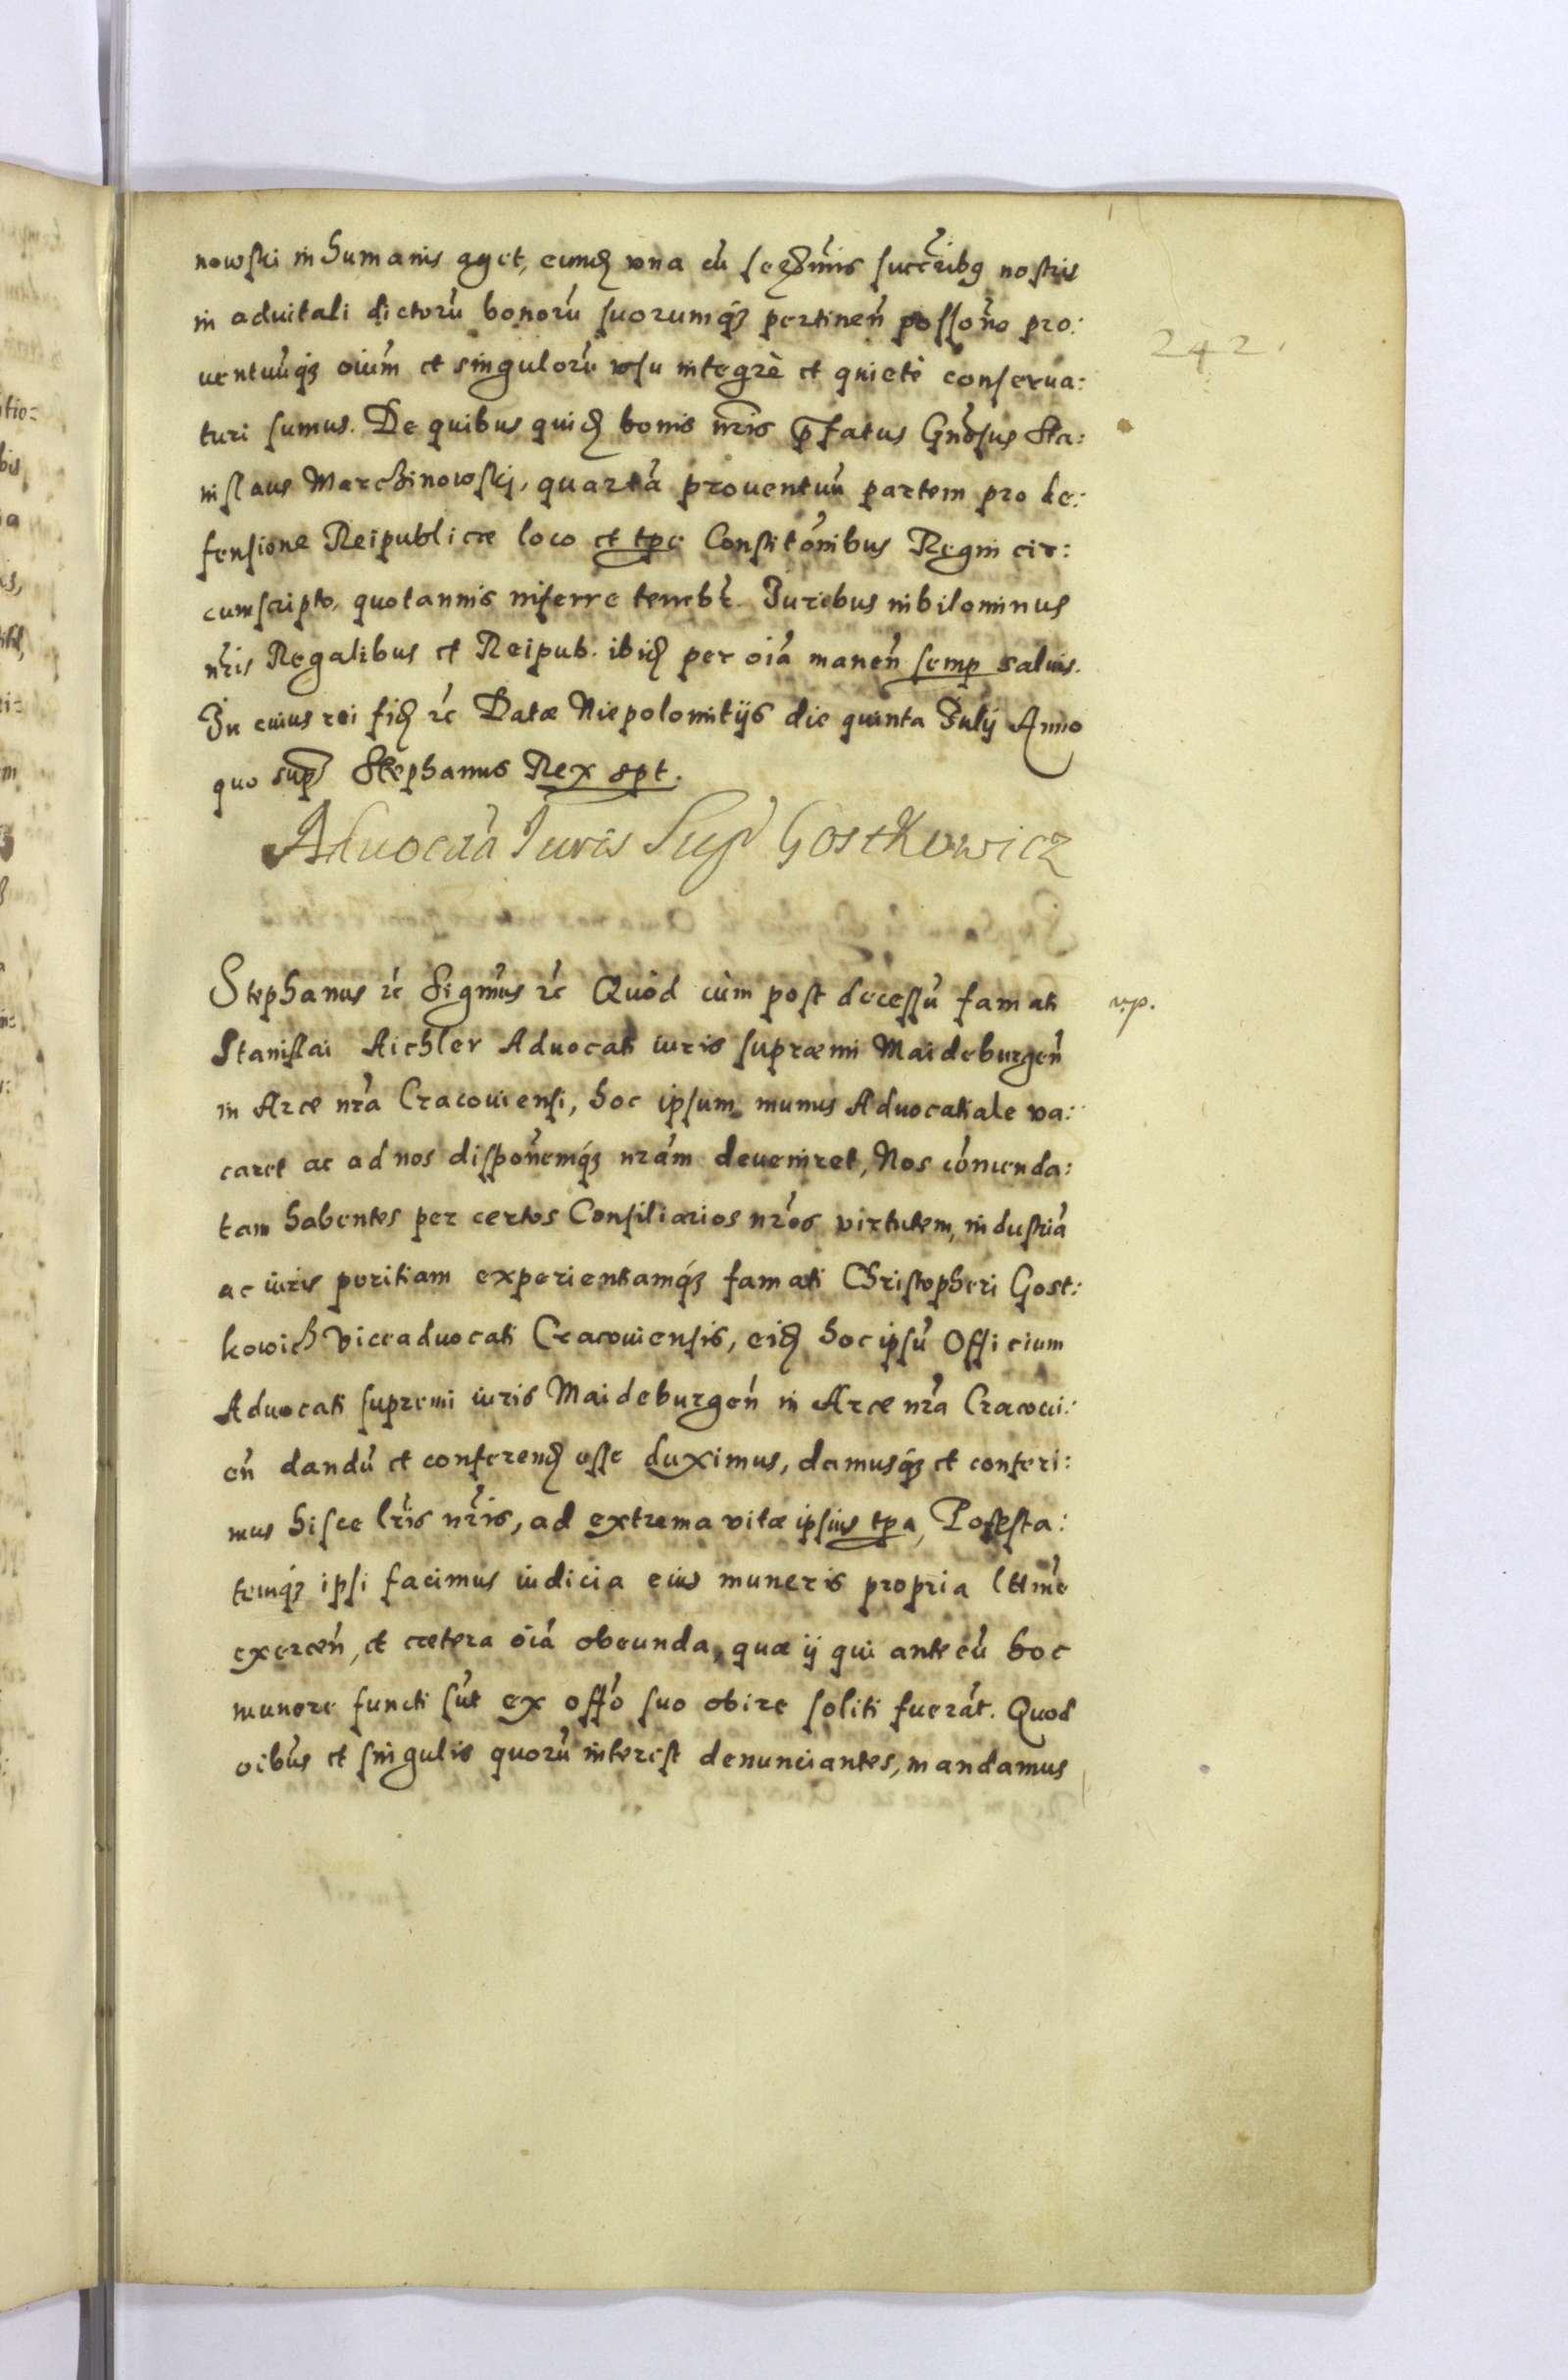 nowski in humanis aget, eund͂ vna cũ sermis succribꝫ nostris
in aduitali dictorũ bonorũ suorumqꝫ pertineñ possoñe pro:
uentuũqꝫ oiũm et singulorũ vsu integrè et quietè conserua:
turi sumus. De quibus quid͂ bonis nr̃is p̃fatus Gnõsus Sta:
nislaus Marchinowskj, quartã prouentuũ partem pro de:
fensione Reipublicæ loco et tp̃e Constitõnibus Regni cir:
cumscripto, quotannis inferre tenebr̃. Juribus nihilominus
nr̃is Regalibus et Reipub. ibid͂ per oĩa maneñ semp saluis.
In cuius rei fid͂ ꝛc̃ Datæ Niepolomitijs die quinta Julij Anno
quo sup̃ Stephanus Rex spt.
Aduocãa Juris Sup̃ Gostkowicz
242.
Stephanus ꝛc̃ Signũs ꝛc̃ Quòd cùm post decessũ famati
vp.
Stanislai Aichler Aduocati iuris supræmi Maideburgeñ
in Arce nr̃a Cracouiensi, hoc ipsum munus Aduocatiale va:
caret ac ad nos disponẽmqꝫ nrãm deueniret, Nos cõmenda:
tam habentes per certos Consiliarios nrõs virtutem, industriã
ac iuris peritiam experientiamqꝫ famati Christopheri Gost:
kowich Viceaduocati Cracouiensis, eid͂ hoc ipsũ Officium
Aduocati supremi iuris Maideburgeñ in Arce nr̃a Cracoui:
eñ dandũ et conferend͂ esse duximus, damusqꝫ et conferi:
mus hisce lr̃is nr̃is, ad extrema vitæ ipsius tp̃a, Potesta:
temqꝫ ipsi facimus iudicia eius muneris propria lttmẽ
exerceñ, et cætera oĩa obeunda, quæ ij qui ante eũ hoc
munere functi sũt ex offõ suo obire soliti fuerãt. Quod
oibũs et singulis quorũ interest denunciantes, mandamus